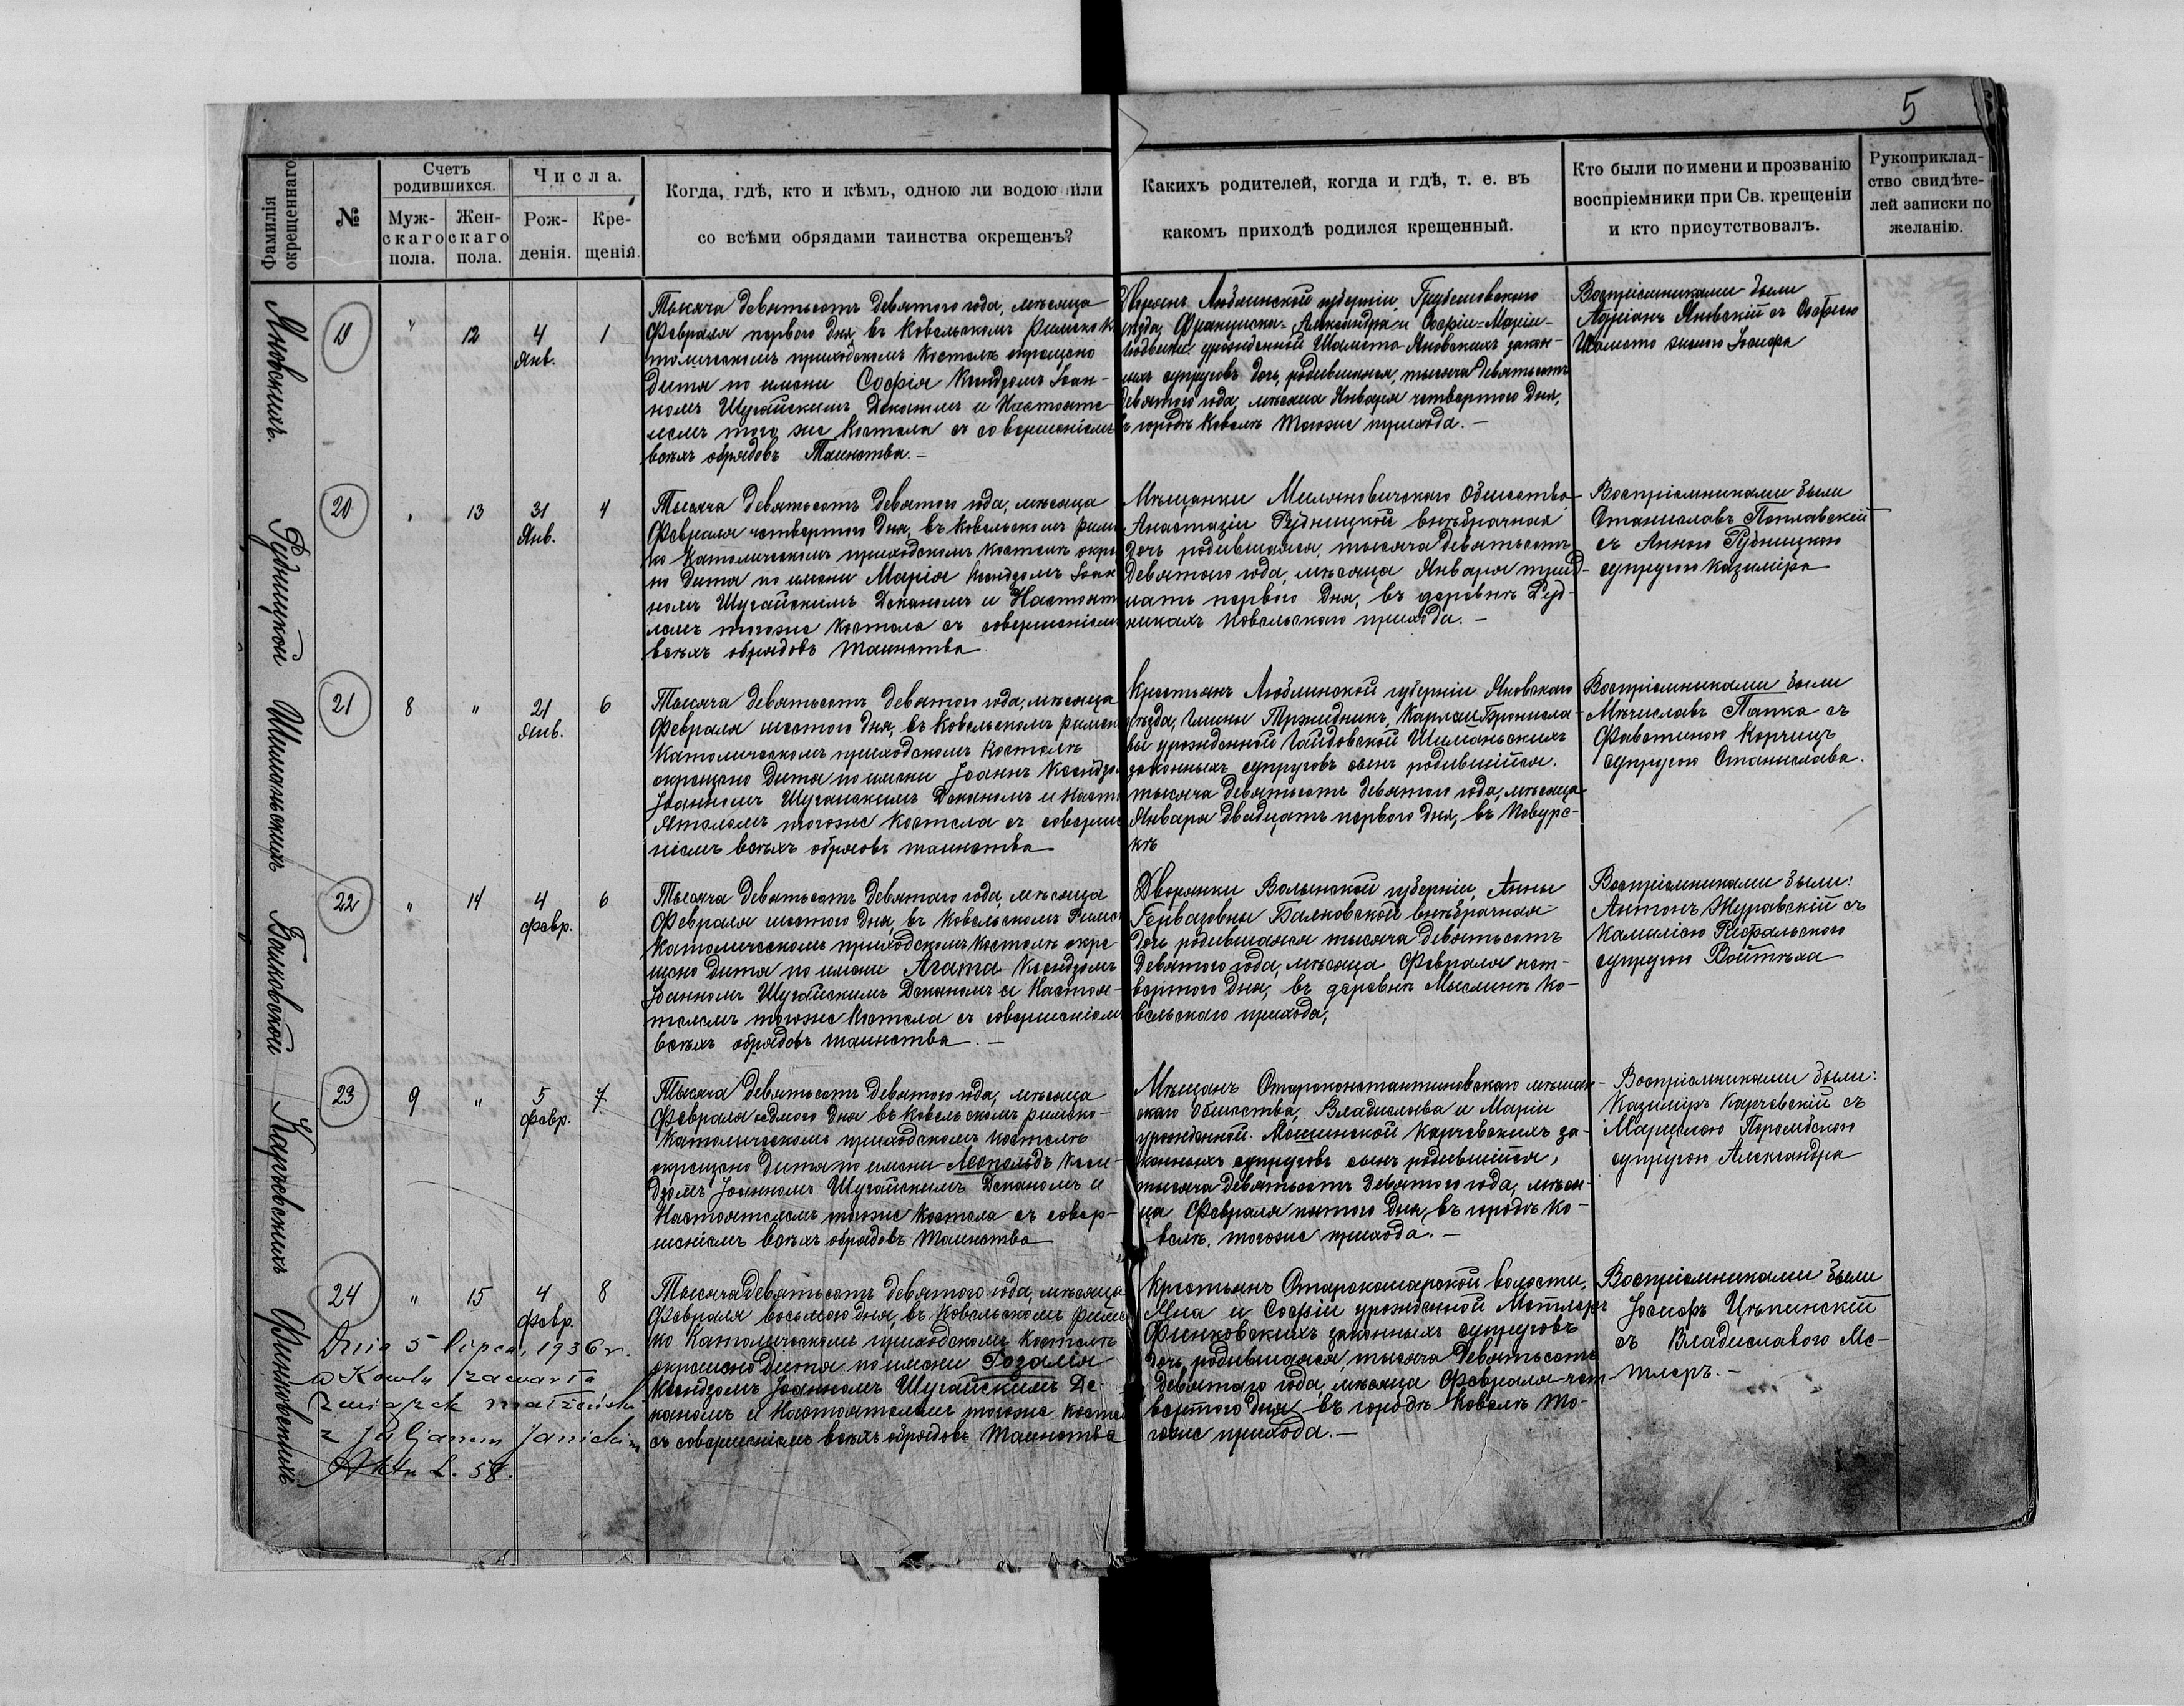 5
Фамилія окрещеннаго
№
Счетъ родившихся.
Мужскаго пола.
Женскаго пола.
Числа.
Рожденія.
Крещенія.
Когда, гдѣ, кто и кѣмъ, одною ли водою или
со всѣми обрядами таинства окрещенъ?
Какихъ родителей, когда и гдѣ, т. е. въ
какомъ приходѣ родился крещенный.
Кто были по имени и прозванію
воспріемники при Св. крещеніи
и кто присутствовалъ.
Рукоприклад-
ство свидѣте-
лей записки по
желанію.
Яновскихъ.
19 " 12 4 Янв. 1
Тысяча девятьсотъ девятого года, мѣсяца
Февраля первого дня, въ Ковельскомъ Римско К
толическомъ приходскомъ Костелѣ окрещено
дитя по имени Софія Ксендзомъ Іоан-
номъ Шугайскимъ Деканомъ и Настояте-
лемъ того же Костела съ совершеніемъ
всѣхъ обрядовъ Таинства.—
Дворянъ Люблинской губерніи, Грубешовского
уѣзда, Франциска-Александра и Софіи=Маріи-
урожденной Шамота Яновскихъ закон-
ныхъ супруговъ дочь, родившаяся, тысяча девятьсотъ
девятого года, мѣсяца Января четвертого дня,
въ городѣ Ковелѣ тогоже прихода.—
Воспріемниками были
Адріанъ Яновскій съ Софіею
Шамото женою Іосифа
Рудницкой
20 " 13 31 Янв. 4
Тысяча девятьсотъ девятого года, мѣсяца
Февраля четвертого дня, въ Ковельскомъ рим
ко Католическомъ приходскомъ костелѣ окре
но дитя по имени Марія Ксендзомъ Іоан
номъ Шугайскимъ Деканомъ и Настоят
лемъ тогоже костела съ совершеніемъ
всѣхъ обрядовъ таинства
Мѣщанки Миляновичского Общества
Анастазіи Рудницкой внѣбрачная
дочь родившаяся, тысяча девятьсотъ
девятого года, мѣсяца Января трид-
цать первого дня, въ деревнѣ Руд-
никахъ Ковельскаго прихода.—
Воспріемниками были
Станиславъ Поплавскій
съ Анною Рудницкою
супругою Казиміра
Шиманьскихъ
21 8 " 21 Янв. 6
Тысяча девятьсотъ девятого года, мѣсяца
Февраля шестого дня, въ Ковельскомъ римск
Католическомъ приходскомъ Костелѣ
окрещено дитя по имени Іоаннъ Ксендзо
Іоанномъ Шугайскимъ Деканомъ и Наст
ятелемъ тогоже Костела съ соверше
ніемъ всѣхъ обрядовъ таинства
Крестьянъ Люблинской губерніи Яновскаго
уѣзда, гмины Тржидникъ, Карла и Бронисла-
вы урожденной Гайдовской Шиманьскихъ
законныхъ супруговъ сынъ родившійся.
тысяча девятьсотъ девятого года, мѣсяца
Января двадцать первого дня, въ Повурс-
кѣ
Воспріемниками были
Мѣчиславъ Папка съ
Фавстиною Корчицъ
супругою Станислава.
Балковской
22 " 14 4 февр. 6
Тысяча девятьсотъ девятаго года, мѣсяца
Февраля шестого дня, въ Ковельскомъ Римск
Католическомъ приходскомъ костелѣ окре
щено дитя по имени Агата Ксендзомъ
Іоанномъ Шугайскимъ Деканомъ и Настоя-
телемъ тогоже Костела съ совершеніем
всѣхъ обрядовъ таинства.—
Дворянки Волынской губерніи, Анны
Герваговны Балковской внѣбрачная
дочь родившаяся тысяча девятьсотъ
девятого года, мѣсяца Февраля чет-
вертого дня, въ деревнѣ Мыслинѣ Ко-
вельскаго прихода,
Воспріемниками были:
Антонъ Журавскій съ
Камиліею
супругою Войтѣха
Карчевскихъ
23 9 " 5 февр. 7
Тысяча девятьсотъ девятого года, мѣсяца
Февраля седмого дня въ Ковельскомъ римско-
Католическомъ приходскомъ костелѣ
окрещено дитя по имени Леопольдъ Ксен-
дзомъ Іоанномъ Шугайскимъ Деканомъ и
Настоятелемъ тогоже Костела съ совер-
шеніемъ всѣхъ обрядовъ Таинства
Мѣщанъ Староконстантиновскаго мѣщан-
скаго общества, Владислава и Маріи
урожденной Мошинской Карчевскихъ за-
конныхъ супруговъ сынъ родившійся,
тысяча девятьсотъ девятого года, мѣся-
ца Февраля пятого дня, въ городѣ Ко-
велѣ, тогоже прихода.—
Воспріемниками были:
Казиміръ Карчевскій съ
супругою Александра
Финковскихъ
24 " 15 4 февр. 8
Тысяча девятьсотъ девятого года, мѣсяца
Февраля восьмого дня, въ Ковельскомъ римс
ко Католическомъ приходскомъ Костелѣ
окрещено дитя по имени Розалія
Ксендзомъ Іоанномъ Шугайскимъ Де-
каномъ и Настоятелемъ тогоже костел
съ совершеніемъ всѣхъ обрядовъ Таинства
Крестьянъ Старокошарской волости,
Яна и Софіи урожденной Метлеръ
Финковскихъ законныхъ супруговъ
дочь, родившаяся тысяча девятьсотъ
девятаго года, мѣсяца Февраля чет-
вертого дня, въ городѣ Ковелѣ то-
гоже прихода.—
Воспріемниками были
Іосифъ Цѣпинскій
съ Владиславою Ме-
тлеръ.—
Dnia 5 lipca, 1936 r.
w Kowlu zawarła
Związek małżeński
z Juljanem Janickim
Akta L. 58.